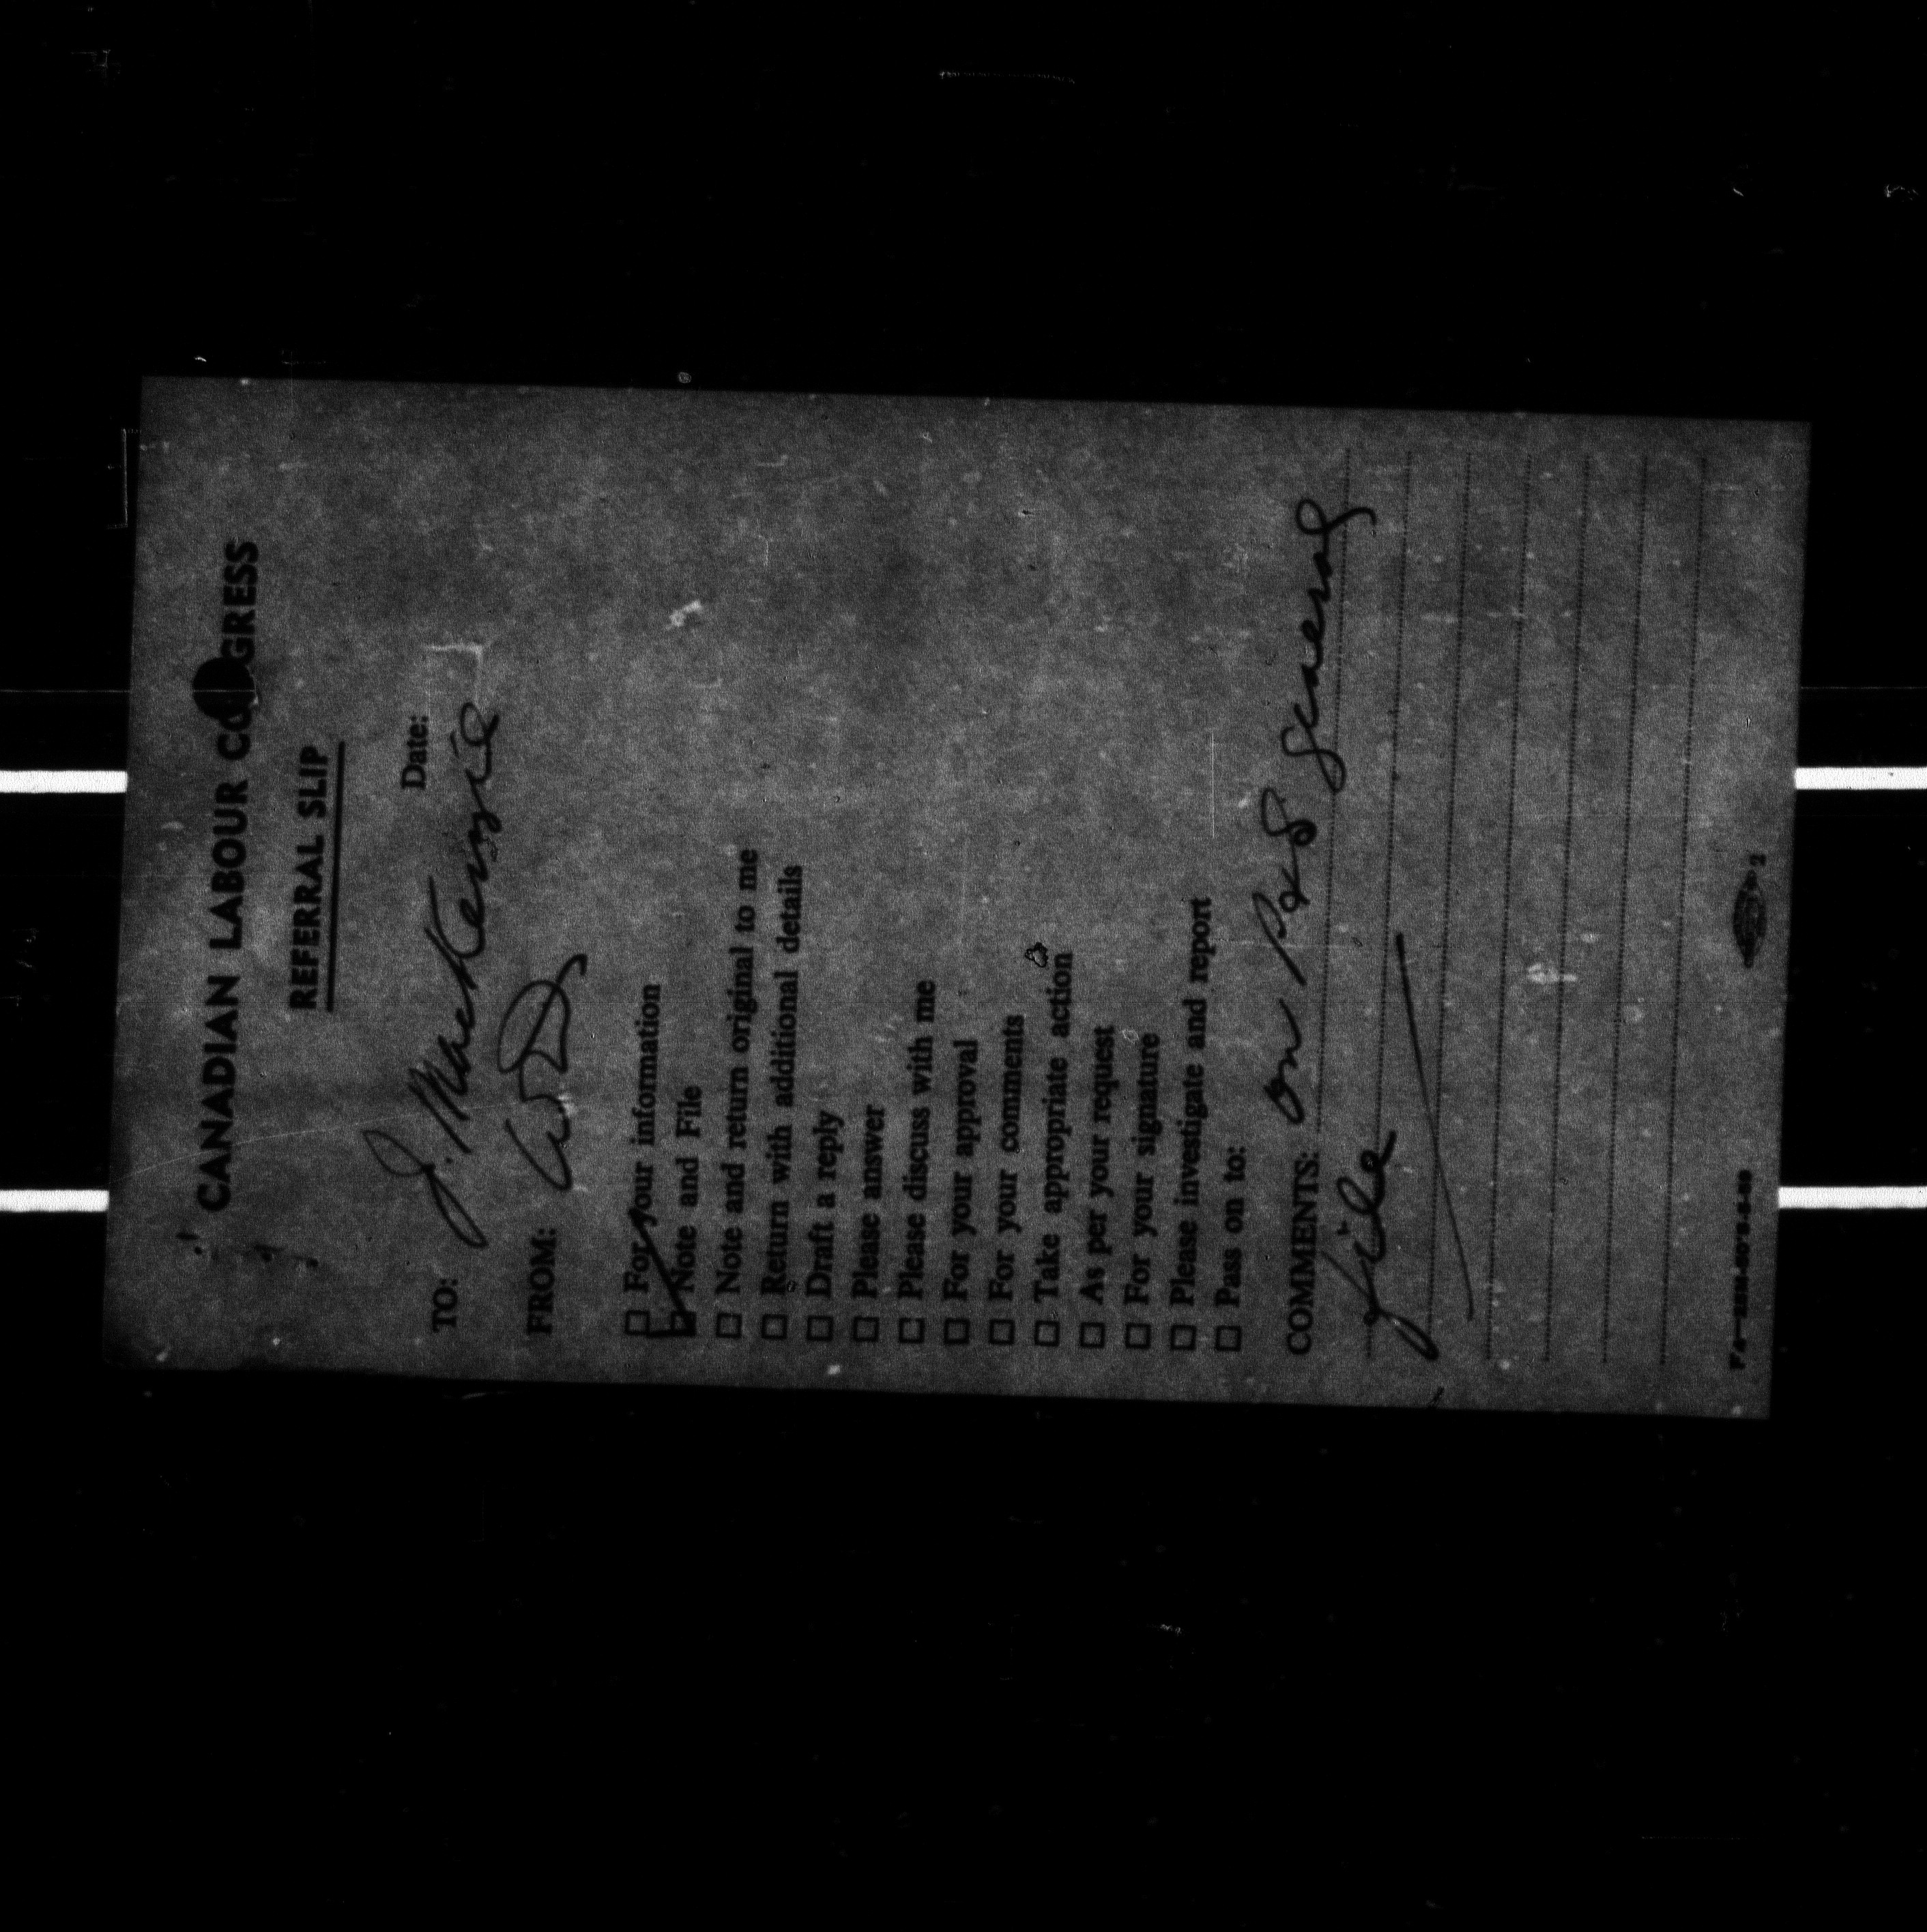 CANADIAN LABOUR CO GRESS
REFERRAL SLIP
Date:
TO: J. MacKenzie
FROM: WD
☐ For your information
☑ Note and File
☐ Note and return original to me
☐ Return with additional details
☐ Draft a reply
☐ Please answer
☐ Please discuss with me
☐ For your approval
☐ For your comments
☐ Take appropriate action
☐ As per your request
☐ For your signature
☐ Please investigate and report
☐ Pass on to:
COMMENTS: on P&S General
file
2